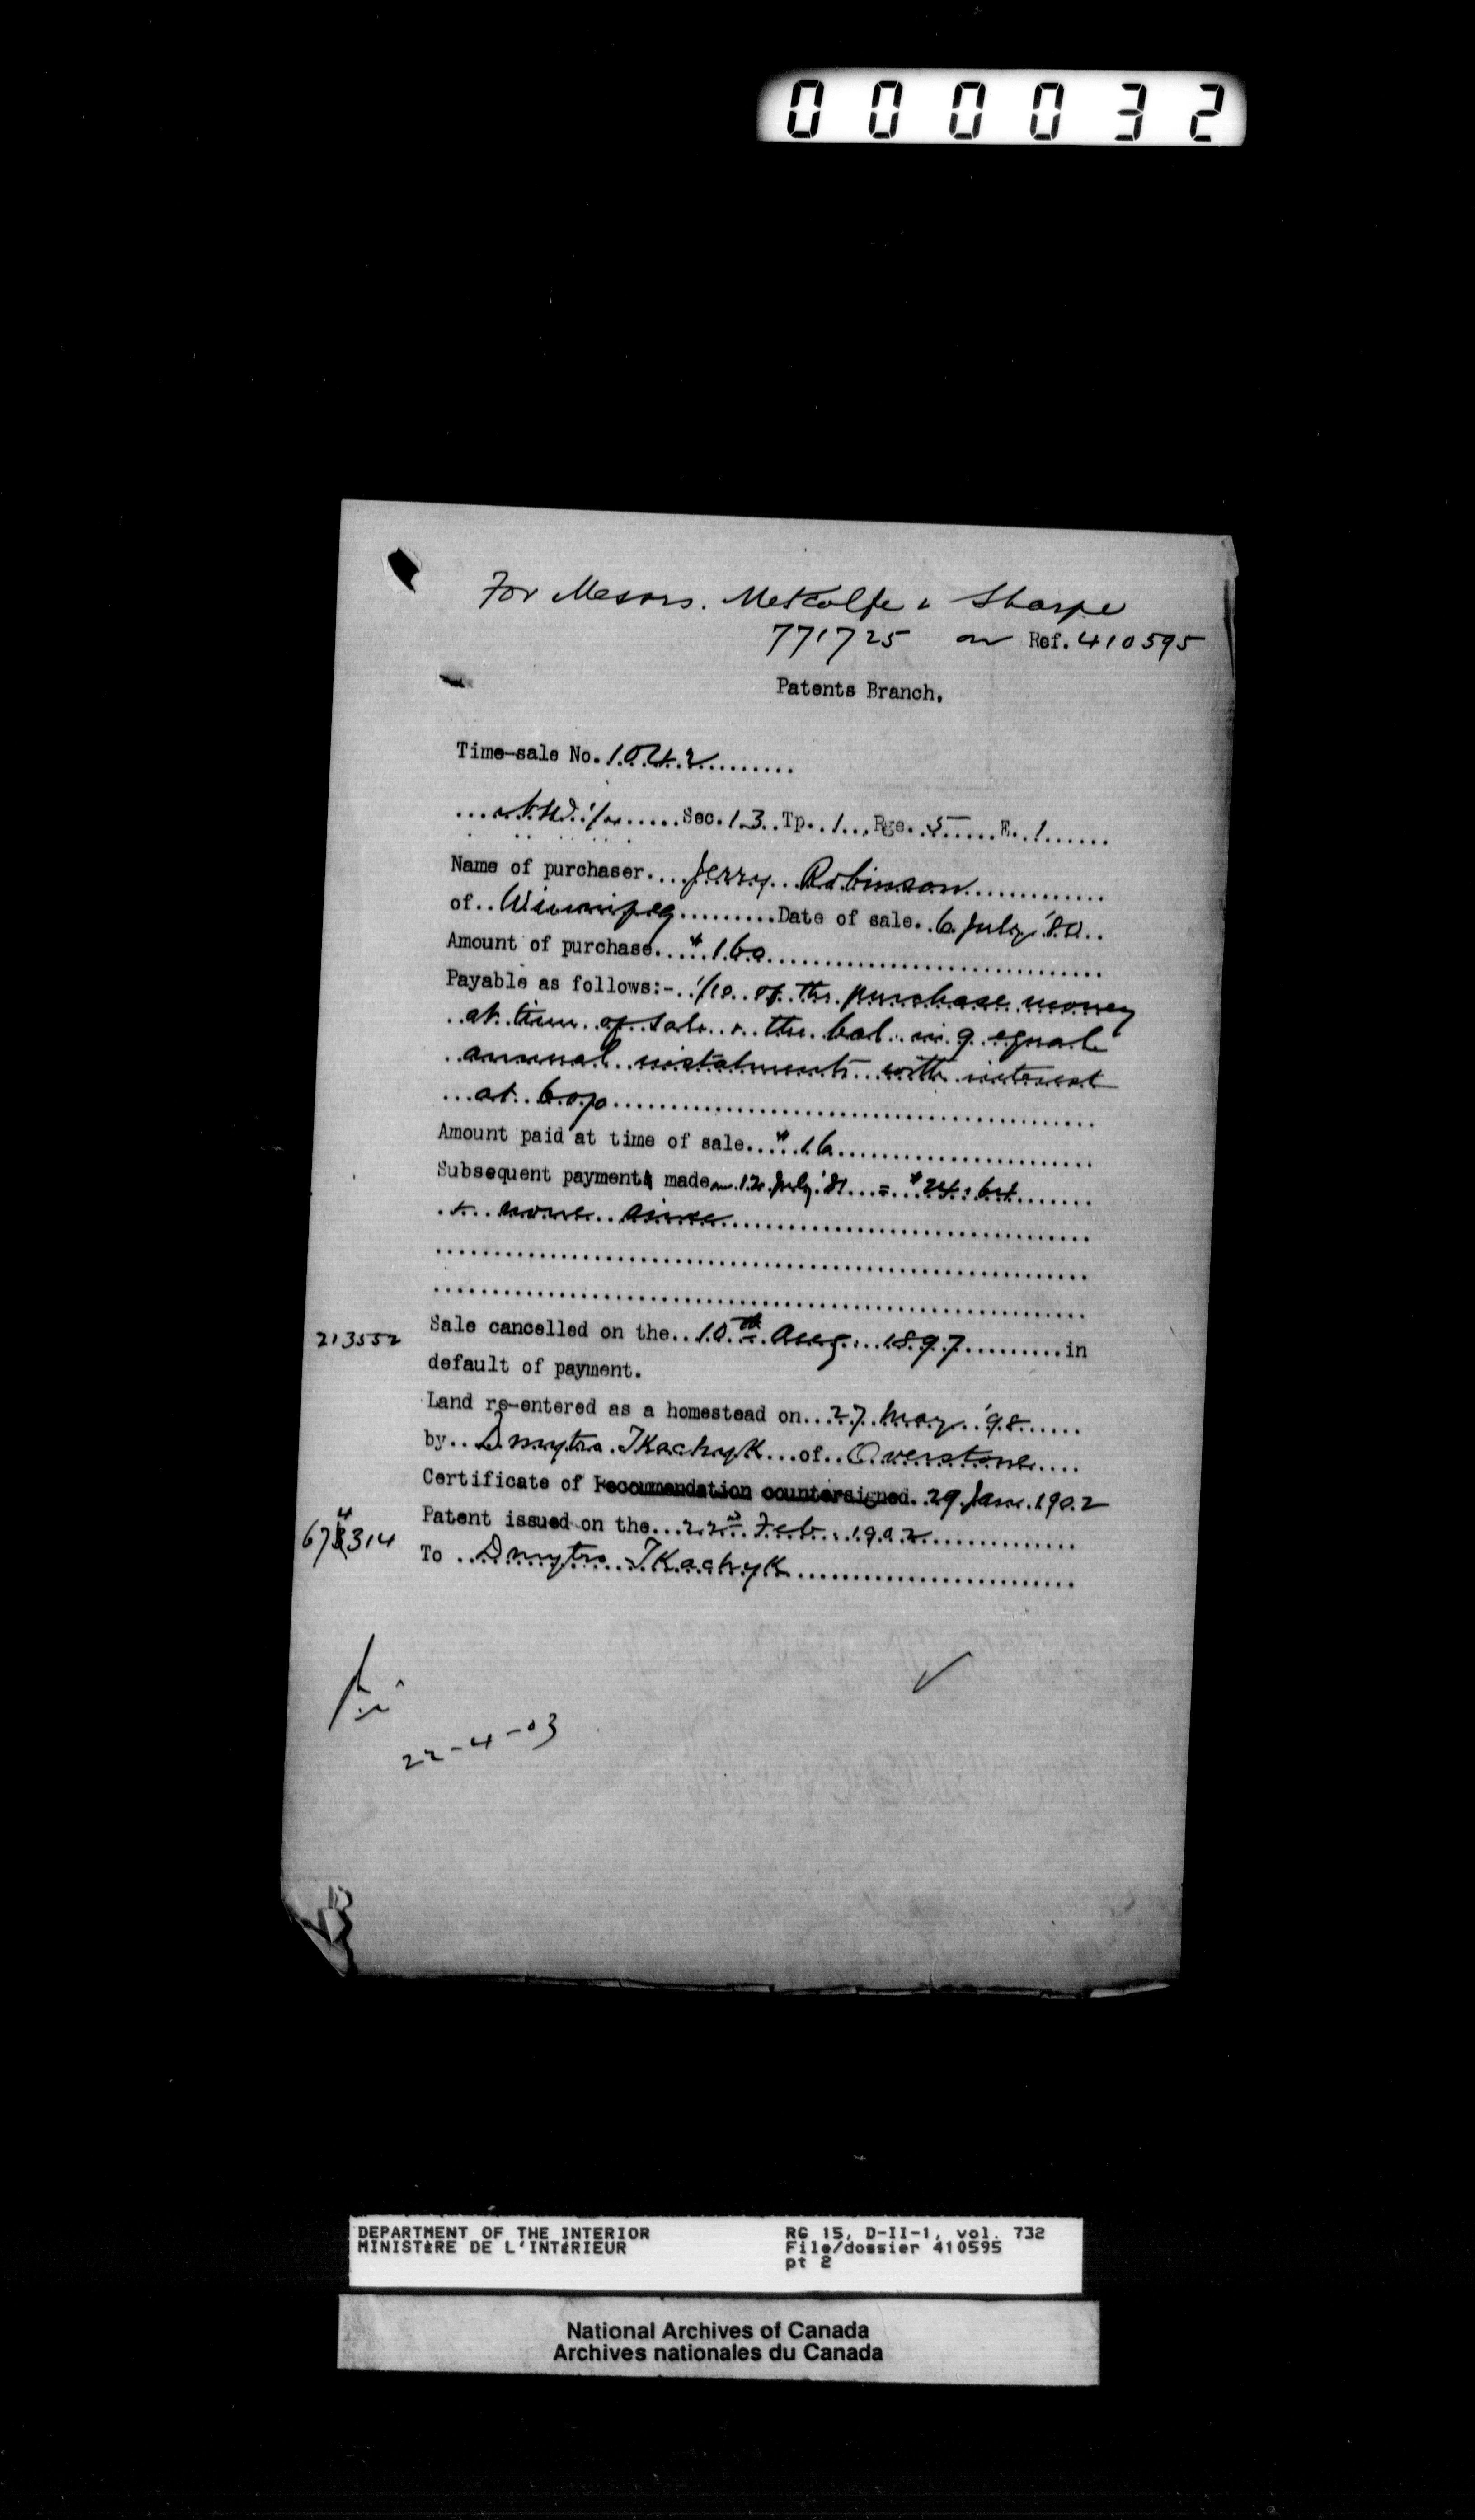 000032
For Messrs. Metcalfe & Sharpe
771725 on Ref. 410595
Patents Branch.
Time-sale No. 1042
N.W. 1/4 Sec. 13 Tp. 1 Rge. 5 E. 1
Name of purchaser Jerry Robinson
of Winnipeg Date of sale 6 July '80
Amount of purchase $160
Payable as follows:- 1/10 of the purchase money
at time of sale & the bal. in 9 equal
annual instalments with interest
at 6 o/o
Amount paid at time of sale $16
Subsequent payment made on 12 July '81 = $24.64
& none since
213552
Sale cancelled on the 10th Aug. 1897 in
default of payment.
Land re-entered as a homestead on 27 May '98
by Dmytro Tkachyk of Overstone
Certificate of Recommendation countersigned 29 Jan. 1902
674314
Patent issued on the 22nd Feb. 1902
To Dmytro Tkachyk
22-4-03
DEPARTMENT OF THE INTERIOR RG 15, D-II-1, vol. 732
MINISTÈRE DE L'INTÉRIEUR File/dossier 410595
pt 2
National Archives of Canada
Archives nationales du Canada